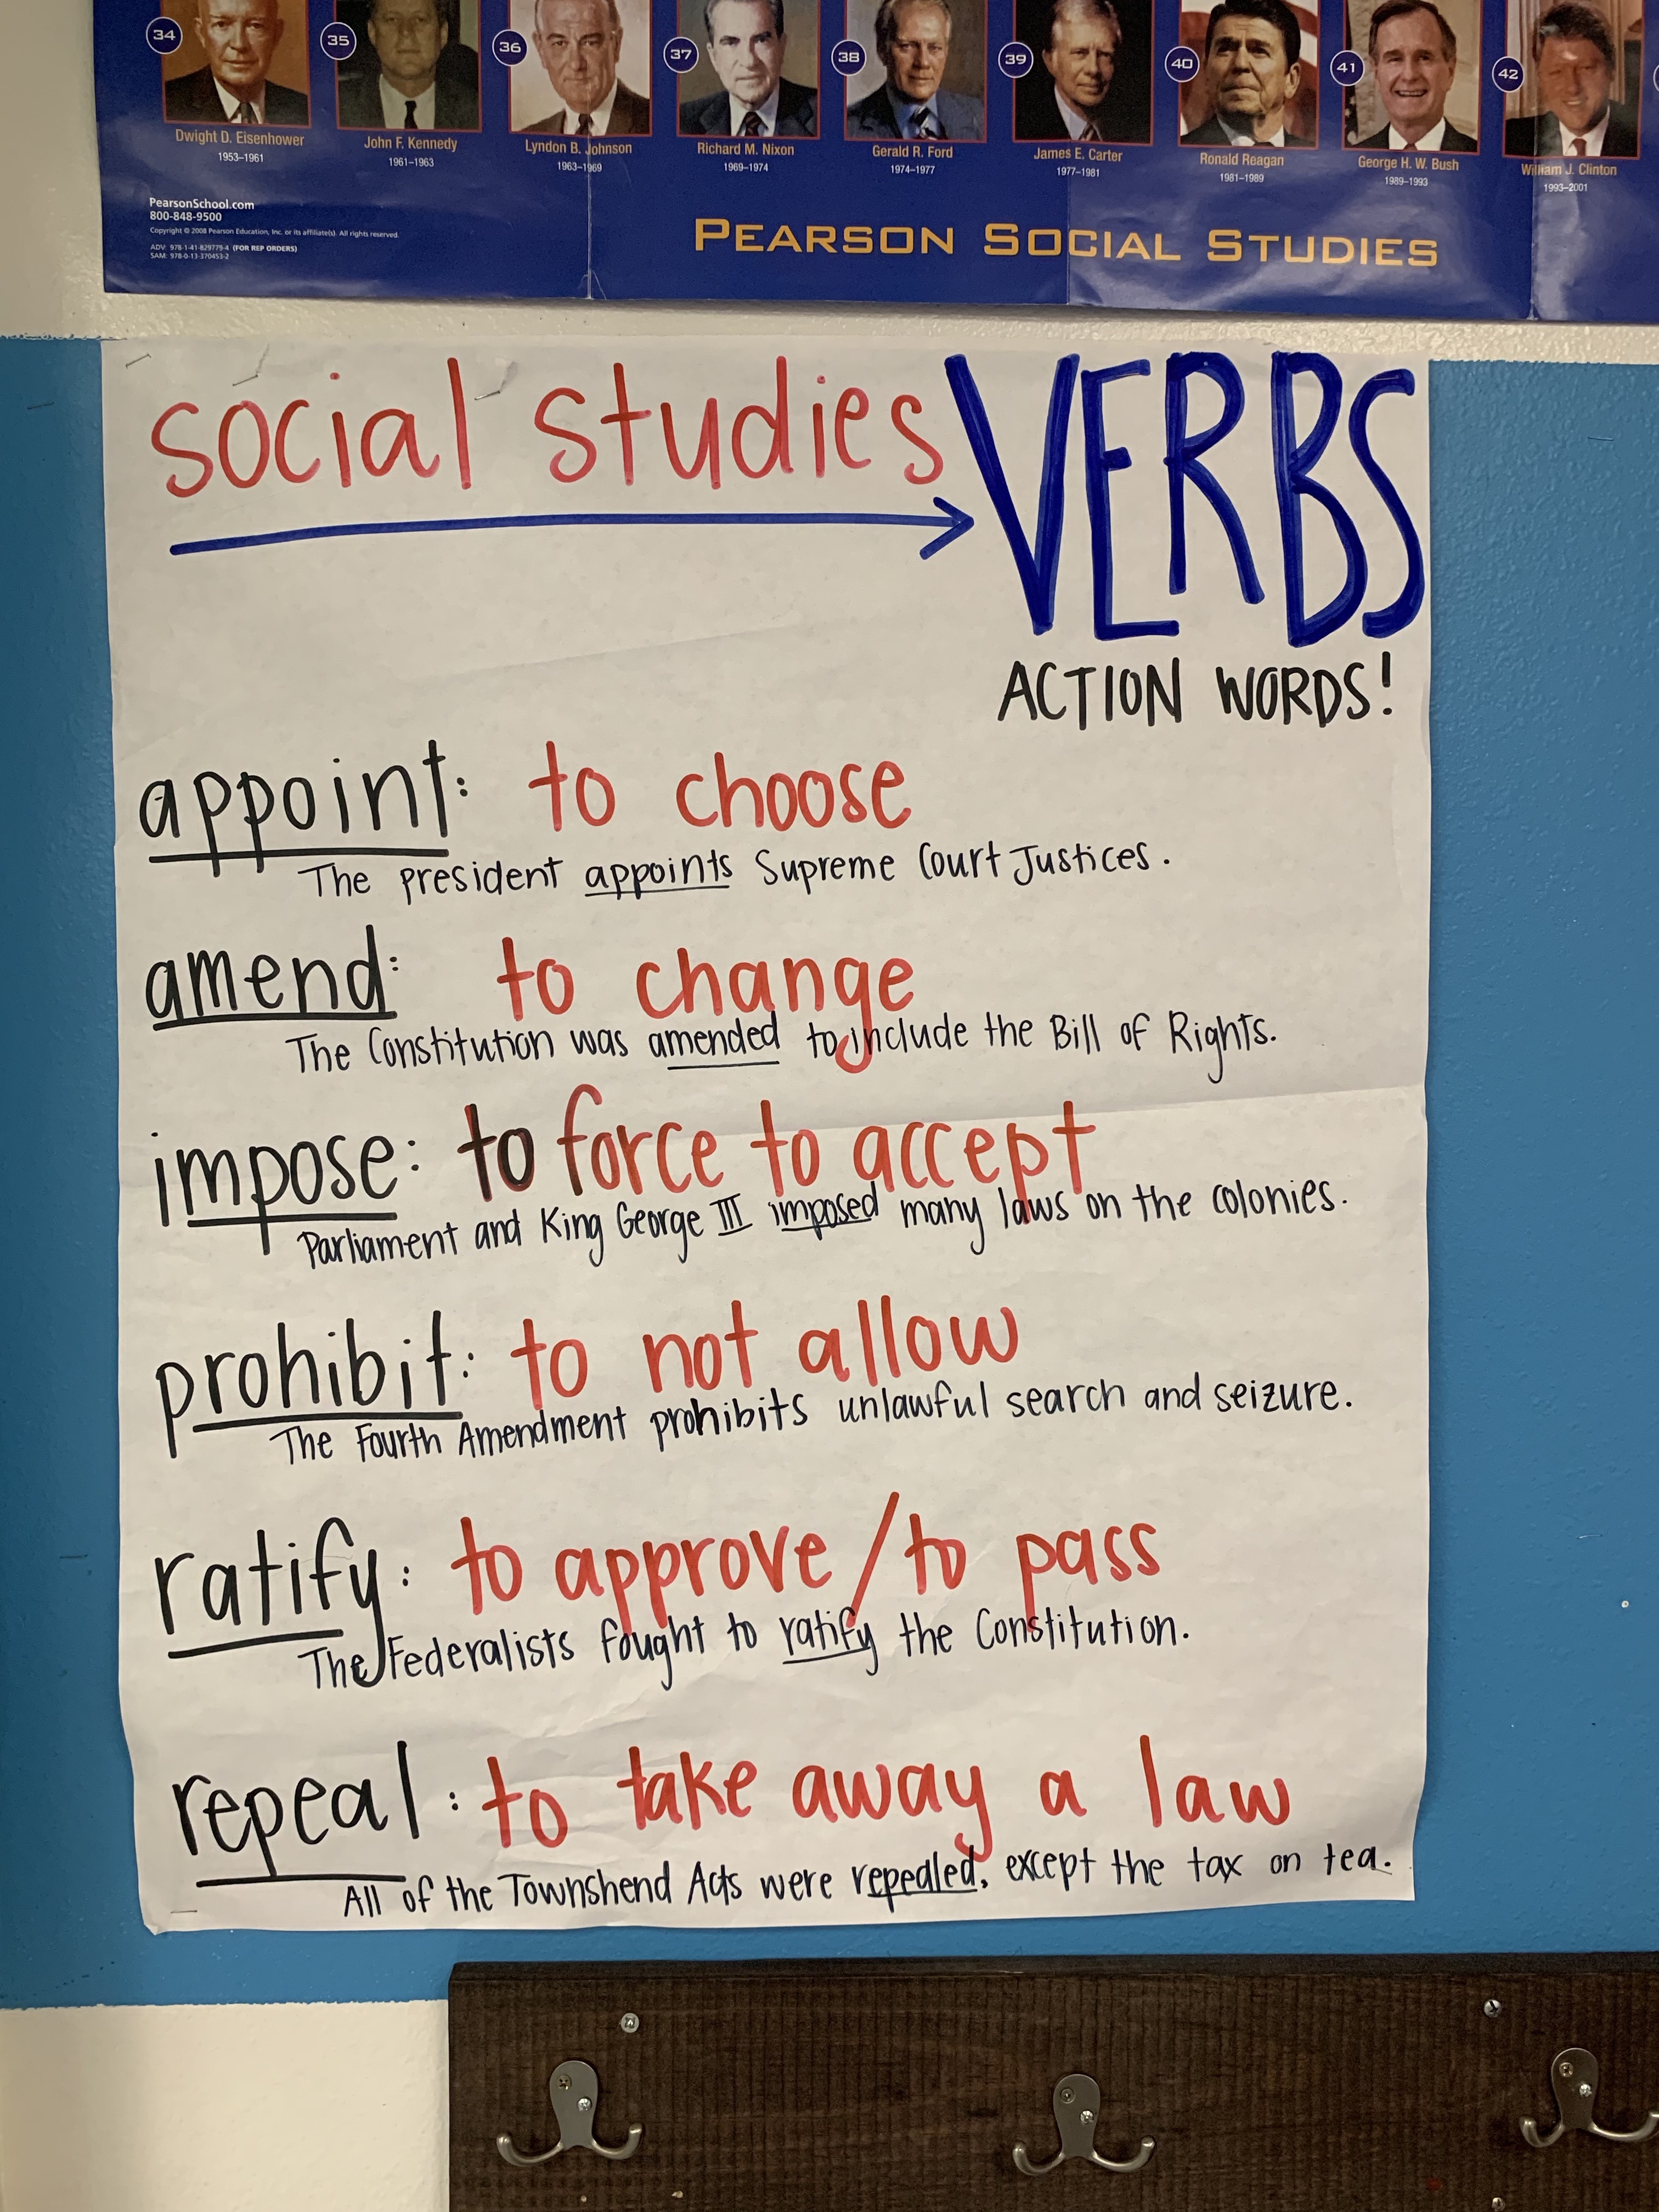 34 35 36 37 38 39 40 41 42
Dwight D. Eisenhower
1953–1961
John F. Kennedy
1961–1963
Lyndon B. Johnson
1963–1969
Richard M. Nixon
1969–1974
Gerald R. Ford
1974–1977
James E. Carter
1977–1981
Ronald Reagan
1981–1989
George H. W. Bush
1989–1993
William J. Clinton
1993–2001
PearsonSchool.com
800-848-9500
Copyright © 2008 Pearson Education, Inc. or its affiliate(s). All rights reserved.
ADV: 978-1-41-829779-4 (FOR REP ORDERS)
SAM: 978-0-13-370453-2
PEARSON SOCIAL STUDIES
social studies VERBS
ACTION WORDS!
appoint: to choose
The president appoints Supreme Court Justices.
amend: to change
The Constitution was amended to include the Bill of Rights.
impose: to force to accept
Parliament and King George III imposed many laws on the colonies.
prohibit: to not allow
The Fourth Amendment prohibits unlawful search and seizure.
ratify: to approve/to pass
The Federalists fought to ratify the Constitution.
repeal: to take away a law
All of the Townshend Acts were repealed, except the tax on tea.